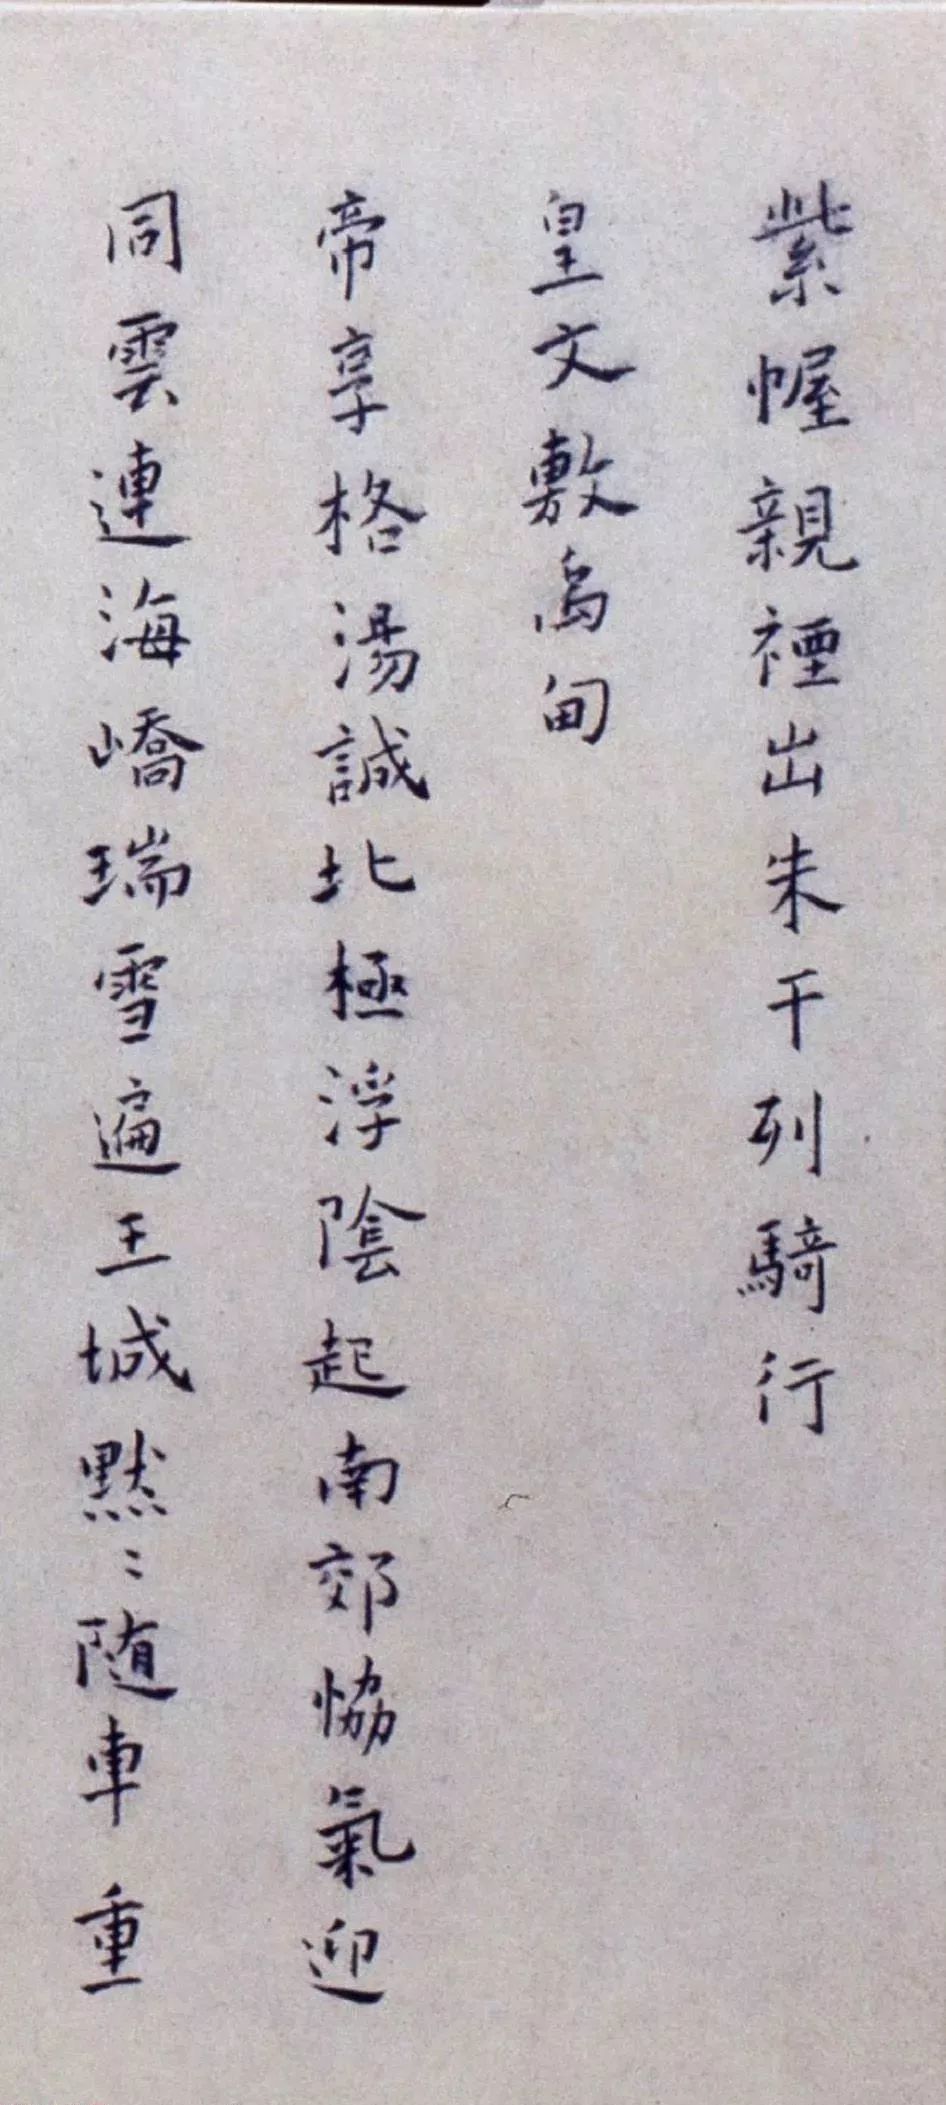 紫幄親禋出朱干列騎行
皇文敷禹甸
帝享格湯誠北極浮陰起南郊協氣迎
同雲連海嶠瑞雪遍王城黙〻随車重